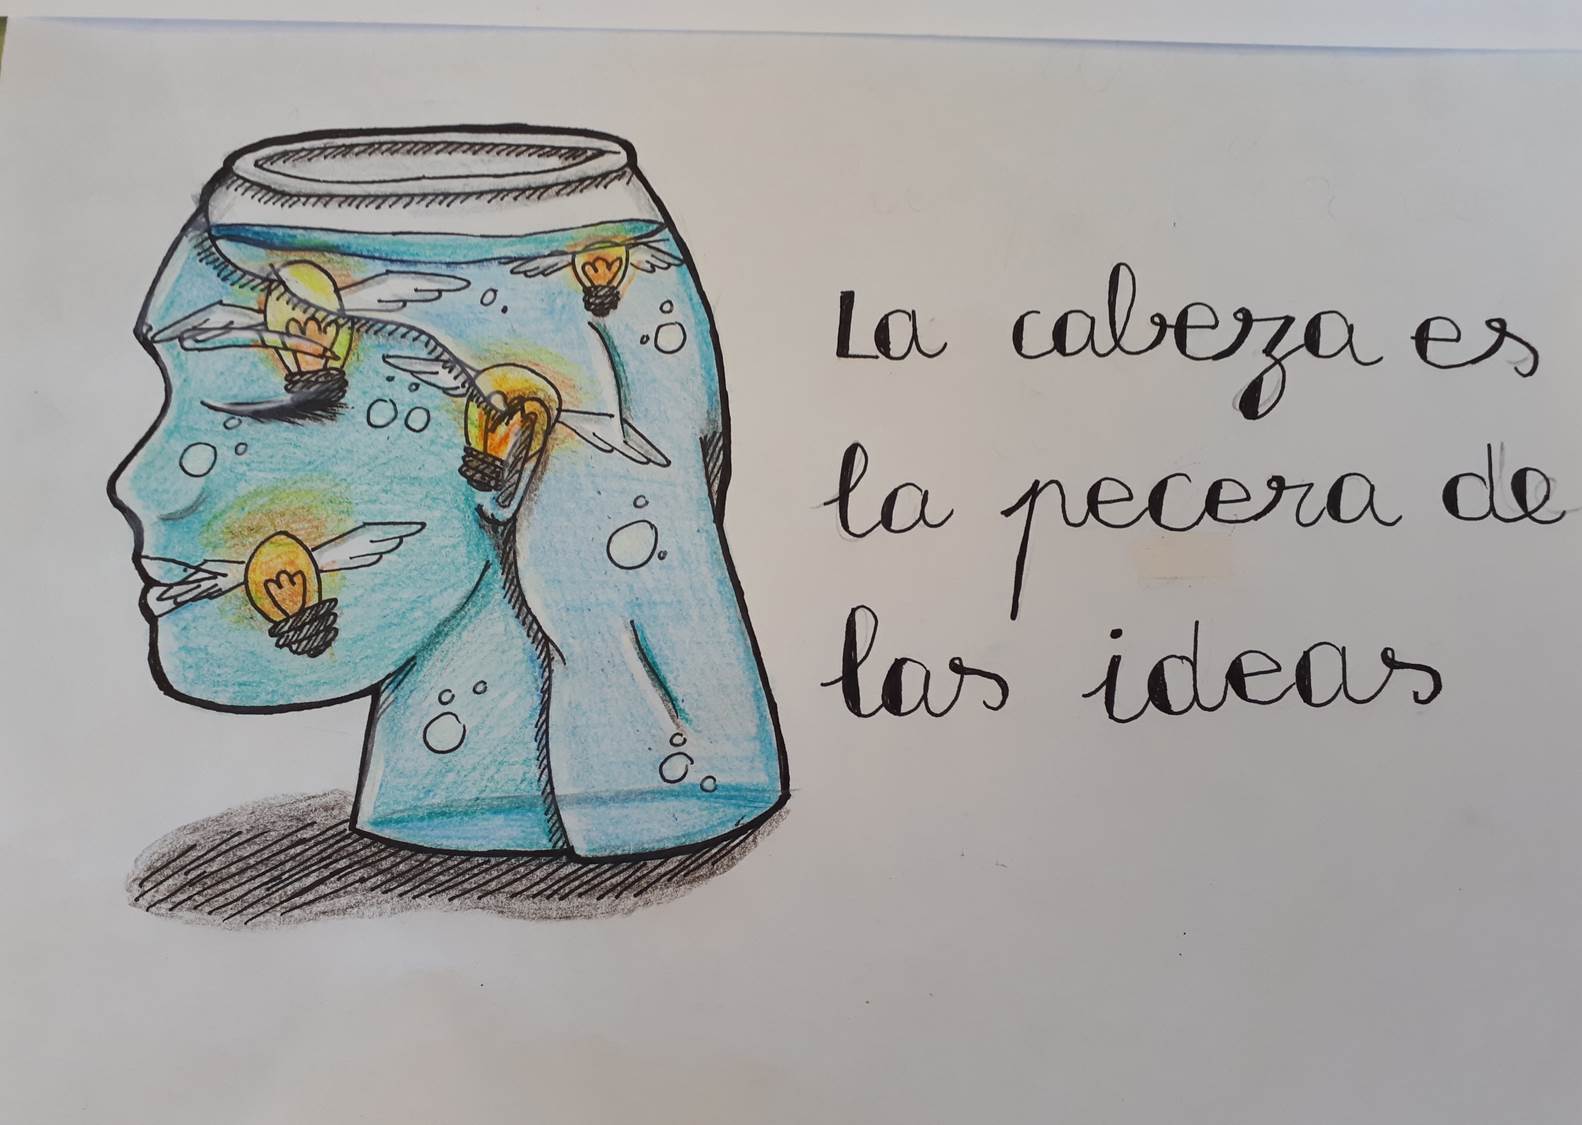 La cabeza es
la pecera de
las ideas